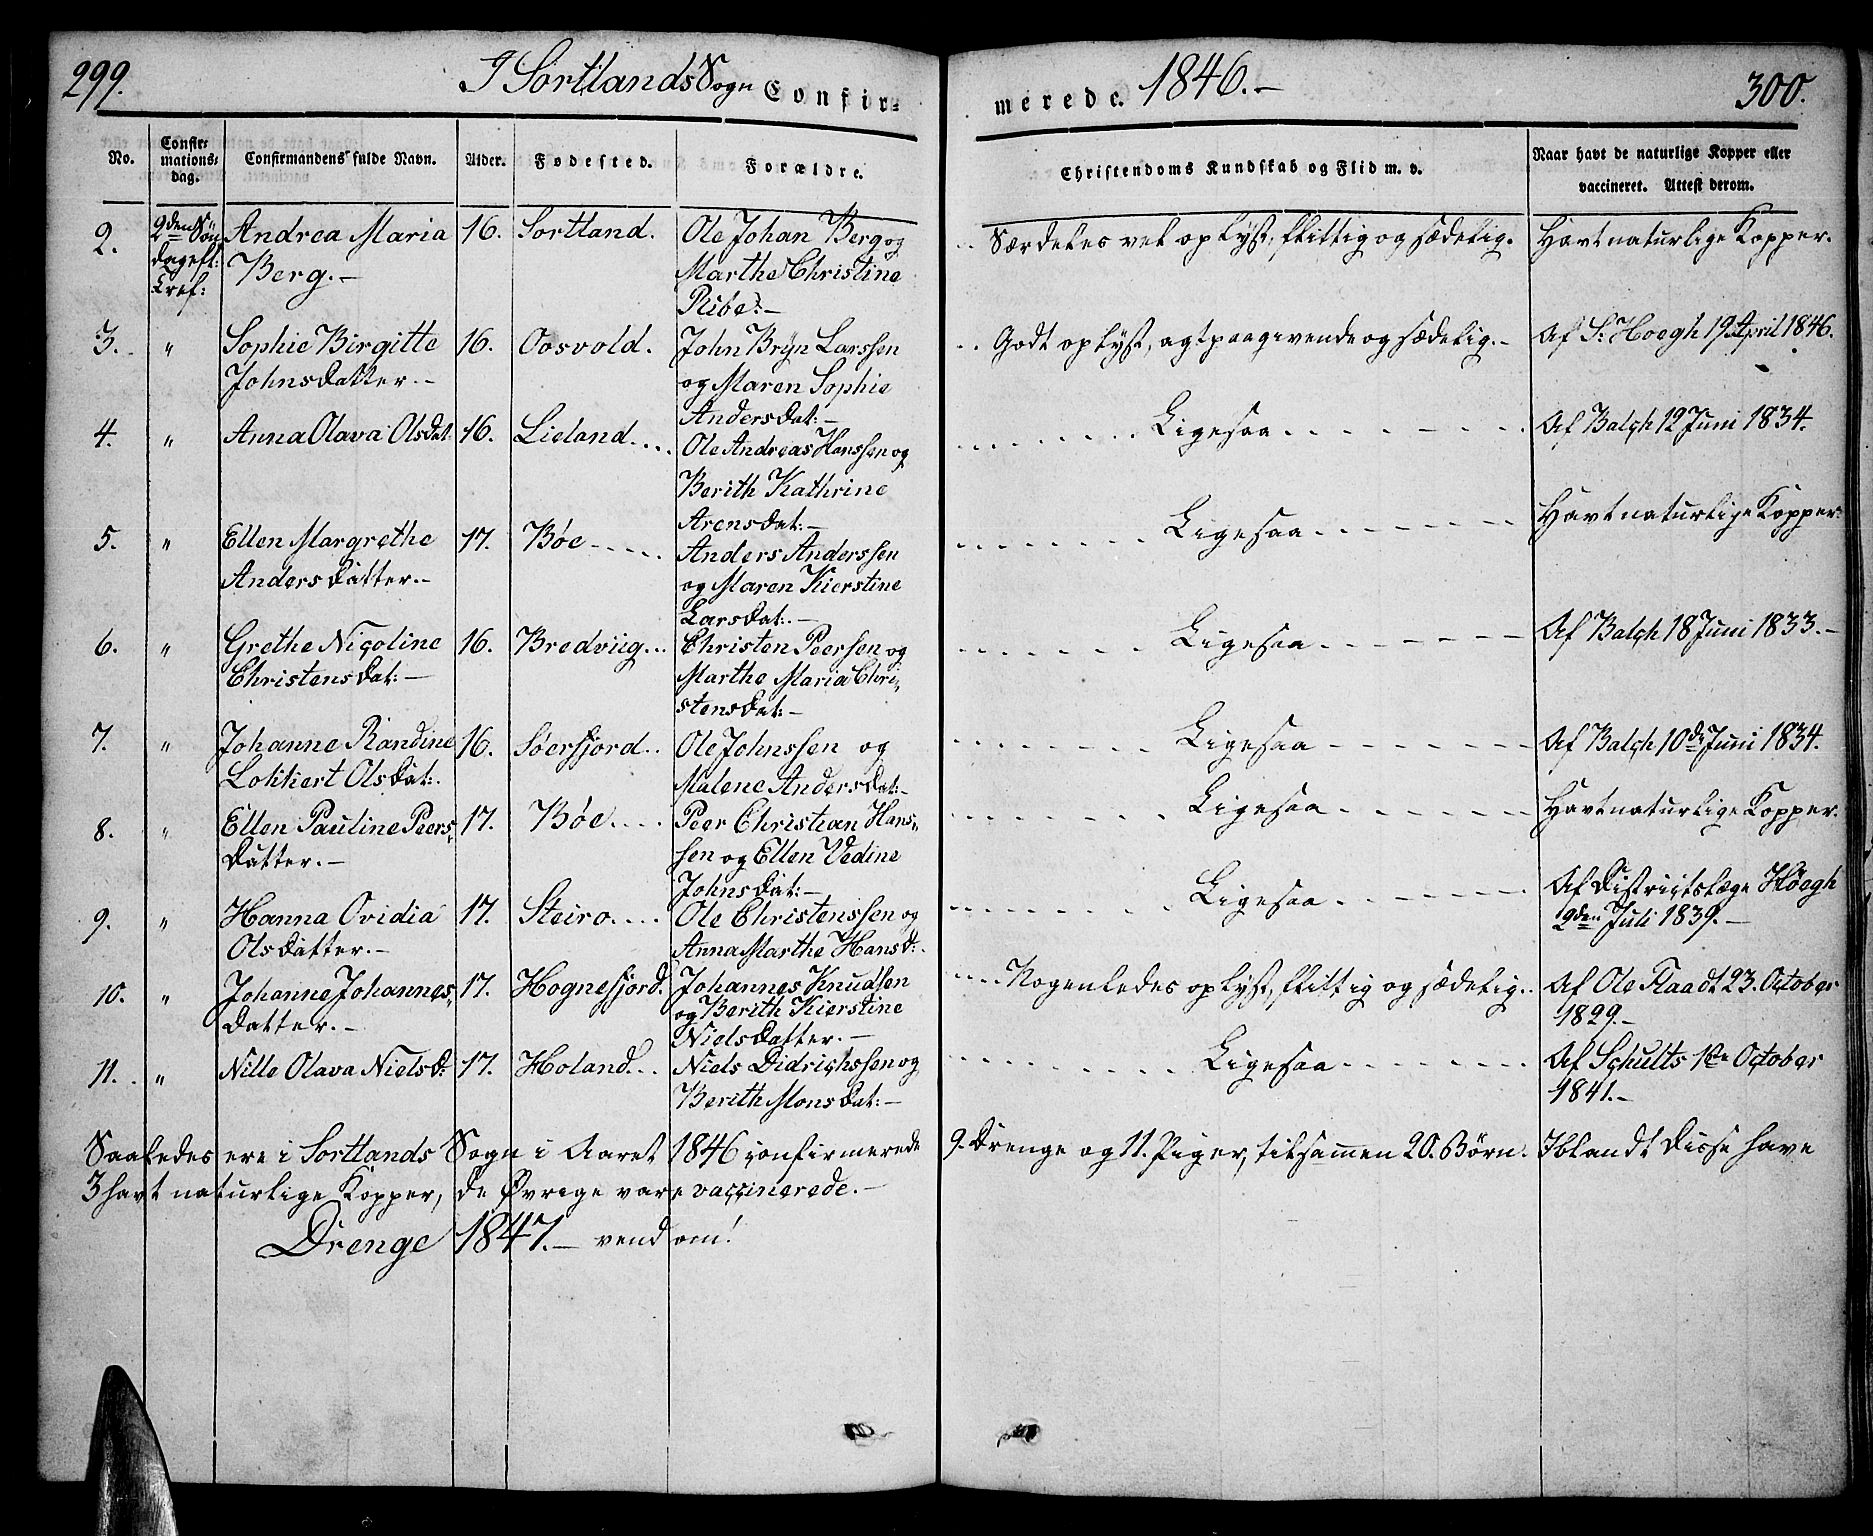 299. I Sortlands Sogn Confir-
merede. 1846.- 300.
No. Confir-mations-dag. Confirmandens fulde Navn. Alder. Fødested. Forældre.
Christendoms Kundskab og Flid m. v. Naar havt de naturlige Kopper eller
vaccineret. Attest derom.
2. 2den Søn- Andrea Maria 16. Sortland. Ole Johan Berg og
dageft: Berg.- Marthe Christine
Tref: Ribe.-
Særdeles vel oplyst, flittig og sædelig. Havt naturlige Kopper.
3. " Sophie Birgitte 16. Oosvold. John Bryn Larssen
Johnsdatter.- og Maren Sophie
Andersdat:-
Godt oplyst, agtpaagivende og sædelig.- Af S. Hoegh 19 April 1846.
4. " Anna Olava Olsdat: 16. Lieland... Ole Andreas Hanssen og
Berith Kathrine
Arensdat:-
Ligesaa Af Balch 12 Juni 1834.
5. " Ellen Margrethe 17. Bøe Anders Anderssen
Andersdatter.- og Maren Kierstine
Larsdat:-
Ligesaa Havt naturlige Kopper.
6. " Grethe Nicoline 16. Bredviig... Christen Peersen og
Christensdat:- Marthe Maria Chri-
stensdat:-
Ligesaa Af Balch 18 Juni 1833.-
7. " Johanne Randine 16. Søerfjord.. Ole Johnssen og
Lokkert Olsdat:. Malene Andersdat:-
Ligesaa Af Balch 10de Juni 1834.
8. " Ellen Pauline Peers- 17. Bøe.... Peer Christian Hans-
datter.- sen og Ellen Vedine
Johnsdat:-
Ligesaa Havt naturlige Kopper.
9. " Hanna Ovidia 17. Steiro.... Ole Christenssen og
Olsdatter.- Anna Marthe Hansd:.
Ligesaa Af Districtslæge Høegh
2den Juli 1839.-
10. " Johanne Johannes- 17. Hognefjord. Johannes Knudsen
datter.- og Berith Kierstine
Nielsdatter.-
Nogenledes oplyst, flittig og sædelig.. Af Ole Flaadt 23. October
1829.-
11. " Nille Olava Nielsd: 17. Holand... Niels Didrichssen og
Berith Monsdat:-
Ligesaa Af Schults 1ste October
1841.-
Saaledes ere i Sortlands Sogn i Aaret 1846 confirmerede 9. Drenge og 11. Piger, tilsammen 20. Børn. Iblandt disse have
3 havt naturlige Kopper, de Øvrige vare vaccinerede.-
Drenge 1847.- vend om!